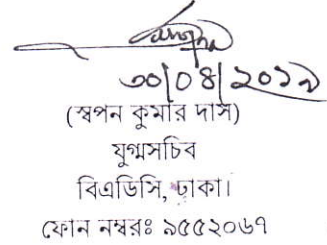 ৩০/০৪/২০১৯
(স্বপন কুমার দাস)
যুগ্মসচিব
বিএডিসি, ঢাকা।
ফোন নম্বরঃ ৯৫৫২০৬৭